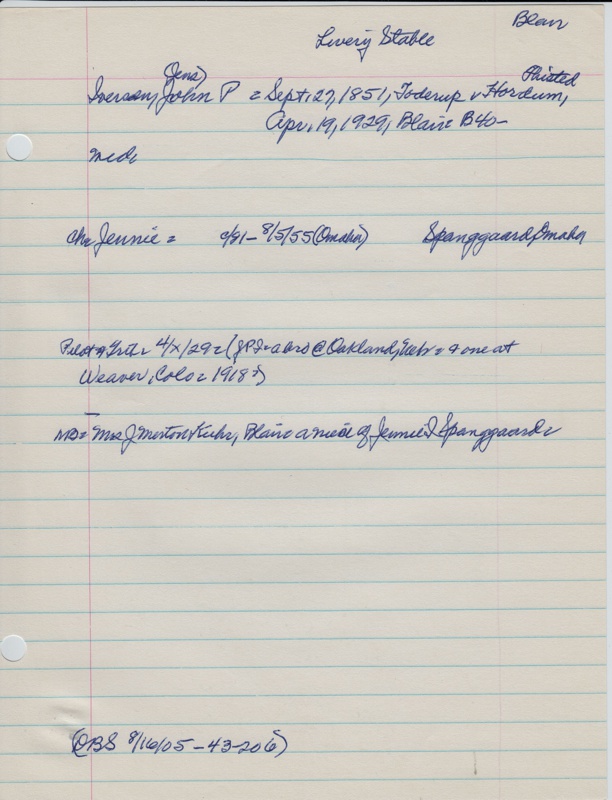 Blair
Livery Stable
(Jens) Thisted
Iversen, John P = Sept. 27, 1851, Toderup v Hordum,
Apr. 19, 1929, Blair = B40-
Med,
Ch= Jennie = c/81- 8/5/55 (Omaha) Spanggaard, Omaha
Pilot & Trib = 4/x/29 = (JPI = a bro @ Oakland, Nebr = & one at
Weaver, Colo = 1918?)
NB= Mrs J Merton Kuhr, Blair = a niece of Jennie I Spanggaard =
(OBS 8/16/05-43-206)